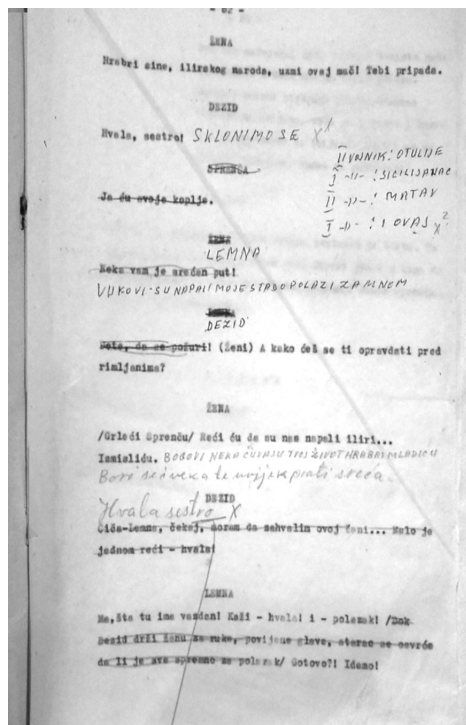 - 62 -
ŽENA
Hrabri sine, ilirskog naroda, uzmi ovaj mač! Tebi pripada.
DEZID
Hvala, sestro! SKLONIMO SE X¹
II VOJNIK: OTULIJE
I -"- : SICILIJANAC
II -"- : MATAV
I -"- : I OVAJ X²
SPRENČA
Ja ću svoje koplje.
ŽENA
LEMNA
Neka vam je srećan put!
VUKOVI SU NAPALI MOJE STADO POLAZI ZA MNOM
DEZID
da se požuri! (Ženi) A kako ćeš se ti opravdati pred
rimljanima?
ŽENA
/Grleći Sprenču/ Reći ću da su nas napali iliri...
Izmisliću. BOGOVI NEKA ČUVAJU TVOJ ŽIVOT HRABRI MLADIĆU
Bori se i neka te uvijek prati sreća.
DEZID
Hvala sestro X
Čiča-Lemna, čekaj, moram da zahvalim ovoj ženi... Malo je
jednom reći - hvala!
LEMNA
Ma, šta tu ima vazdan! Kaži - hvala! i - polazak! /Dok
Dezid drži ženu za ruke, povijene glave, starac se osvrće
da li je sve spremno za polazak/ Gotovo?! Idemo!